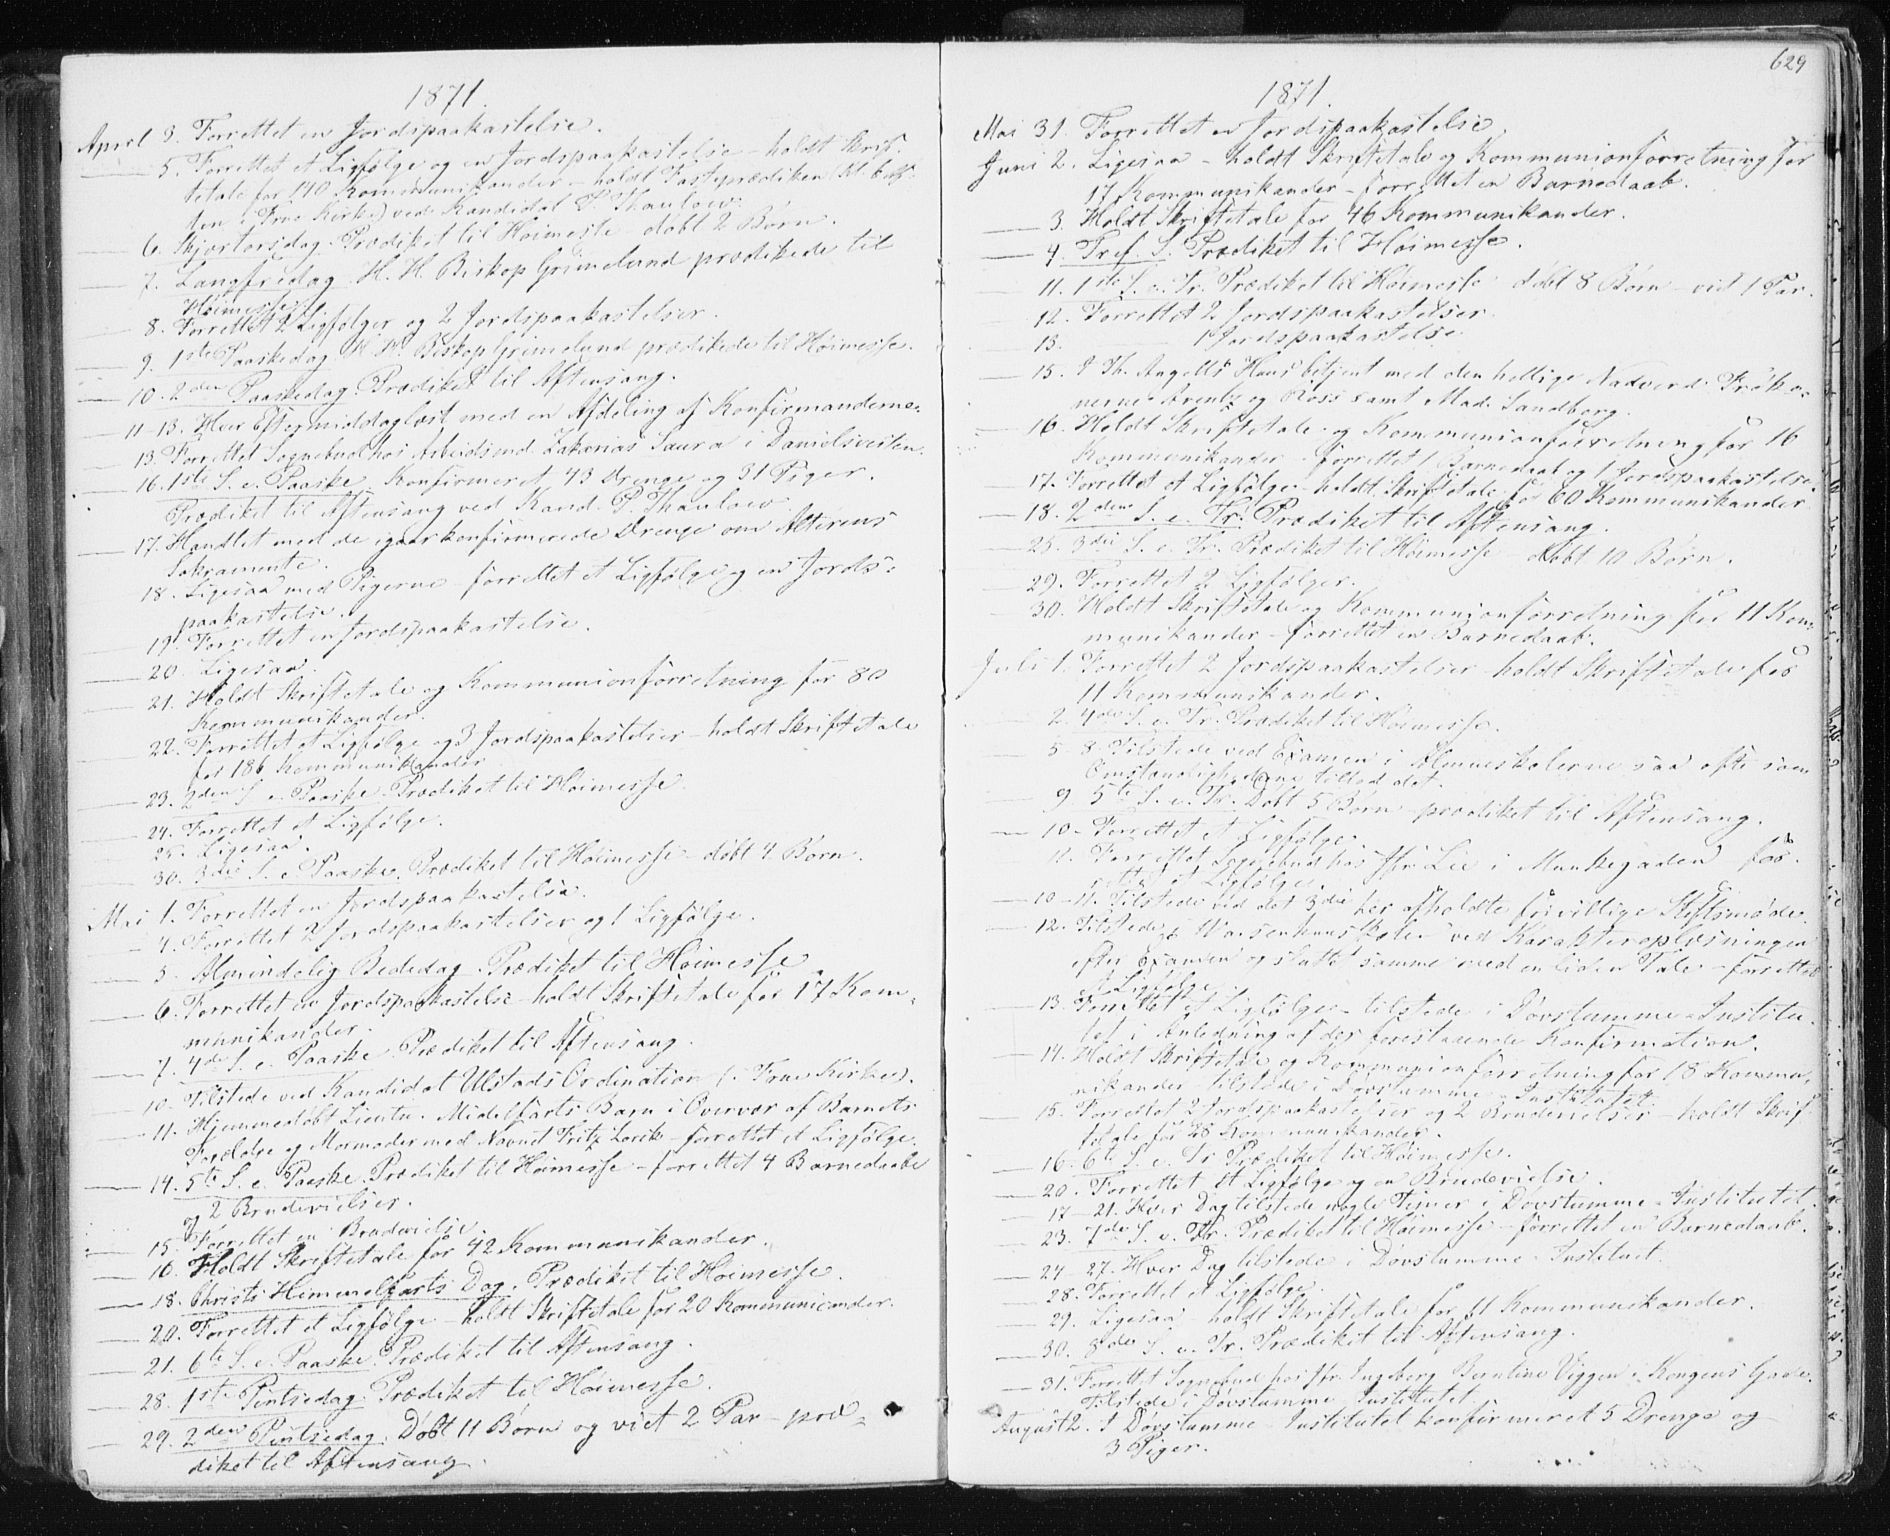 1871.
April 3. Forrettet en Jordspaakastelse.
5. Forrettet et Ligfølge og en Jordspaakastelse - holdt Skrif-
tetale for 140 Kommunikander - holdt Fasteprædiken (Kl. 6 Af-
ten i Frue Kirke) ved Kandidat P. Thaulow.
6. Skjærtorsdag. Prædiket til Høimesse - døbt 2 Børn.
7. Langfredag. H. H. Biskop Grimelund prædikede til
Høimesse.
8. Forrettet 2 Ligfølger og 2 Jordspaakastelser.
9. 1ste Paaskedag. H. H. Biskop Grimelund prædikede til Høimesse.
10. 2den Paaskedag. Prædiket til Aftensang.
11-13. Hver Eftermiddag læst med en Afdeling af Konfirmanderne.
13. Forrettet Sognebud hos Arbeidsmd. Zakarias Saura i Danielsveiten.
16. 1ste S. e. Paaske. Konfirmeret 43 Drenge og 31 Piger.
Prædiket til Aftensang ved Kand. P. Thaulow.
17. Handlet med de igaar konfirmerede Drenge om Alterens
Sakramente.
18. Ligesaa med Pigerne - forrettet et Ligfølge og en Jords-
paakastelse.
19. Forrettet en Jordspaakastelse.
20. Ligesaa.
21. Holdt Skriftetale og Kommunionforretning for 80
Kommunikander.
22. Forrettet et Ligfølge og 3 Jordspaakastelser - holdt Skriftetale
for 186 Kommunikander.
23. 2den S. e. Paaske. Prædiket til Høimesse.
24. Forrettet et Ligfølge.
25. Ligesaa.
30. 3die S. e. Paaske. Prædiket til Høimesse - døbt 4 Børn.
Mai 1. Forrettet en Jordspaakastelse.
4. Forrettet 2 Jordspaakastelser og 1 Ligfølge.
5. Almindelig Bededag. Prædiket til Høimesse.
6. Forrettet en Jordspaakastelse - holdt Skriftetale for 17 Kom-
munikander.
7. 4de S. e. Paaske. Prædiket til Aftensang.
10. Tilstede ved Kandidat Ulstads Ordination (i Frue Kirke).
11. Hjemmedøbt Lieutn. Midelfarts Barn i Overvær af Barnets
Forældre og Mormoder med Navnet Fritz Lorck - forrettet et Ligfølge.
14. 5te S. e. Paaske. Prædiket til Høimesse - forrettet 4 Barnedaabe
og 2 Brudevielser.
15. Forrettet en Brudevielse.
16. Holdt Skriftetale for 42 Kommunikander.
18. Christi Himmelfarts Dag. Prædiket til Høimesse.
20. Forrettet et Ligfølge - holdt Skriftetale for 20 Kommunicander.
21. 6te S. e. Paaske. Prædiket til Aftensang.
28. 1ste Pintsedag. Prædiket til Høimesse.
29. 2den Pintsedag. Døbt 11 Børn og viet 2 Par - præ-
diket til Aftensang.
629
1871.
Mai 31. Forrettet en Jordspaakastelse.
Juni 2. Ligesaa - holdt Skriftetale og Kommunionforretning for
17 Kommunikander - forrettet en Barnedaab.
3. Holdt Skriftetale for 46 Kommunikander.
4. Tref. S. Prædiket til Høimesse.
11. 1ste S. e. Tr. Prædiket til Høimesse - døbt 8 Børn - viet 1 Par.
12. Forrettet 2 Jordspaakastelser.
13. 1 Jordspaakastelse.
15. I Th. Angells Hus betjent med den hellige Nadverd Frøke-
nerne Arentz og Ross samt Mad. Sandborg.
16. Holdt Skriftetale og Kommunionforretning for 16
Kommunikander - forrettet 1 Barnedaab og 1 Jordspaakastelse.
17. Forrettet et Ligfølge - holdt Skriftetale for 60 Kommunikander.
18. 2den S. e. Tr. Prædiket til Aftensang.
25. 3die S. e. Tr. Prædiket til Høimesse - døbt 10 Børn.
29. Forrettet 2 Ligfølger.
30. Holdt Skriftetale og Kommunionforretning for 11 Kom-
munikander - forrettet en Barnedaab.
Juli 1. Forrettet 2 Jordspaakastelser - holdt Skriftetale for
11 Kommunikander.
2. 4de S. e. Tr. Prædiket til Høimesse.
5-8. Tilstede ved Examen i Almueskolerne saa ofte som
Omstændighederne tillod det.
9. 5te S. e. Tr. Døbt 5 Børn - prædiket til Aftensang.
10. Forrettet et Ligfølge.
11. Forrettet Sognebud hos Jfr. Lie i Munkegaden - for-
rettet et Ligfølge.
10-11. Tilstede ved det 3die her afholdte frivillige Stiftsmøde.
12. Tilstede i Waisenhusskolen ved Karakteroplæsningen
efter Examen og sluttet samme med en liden Tale - forrettet
et Ligfølge.
13. Forrettet et Ligfølge - tilstede i Døvstumme-Institu-
tet i Anledning af den forestaaende Konfirmation.
14. Holdt Skriftetale og Kommunionforretning for 18 Kommu-
nikander - tilstede i Døvstumme-Institutet.
15. Forrettet 2 Jordspaakastelser og 2 Brudevielser - holdt Skrif-
tetale for 28 Kommunikander.
16. 6te S. e. Tr. Prædiket til Høimesse.
20. Forrettet et Ligfølge og en Brudevielse.
17-21. Hver Dag tilstede nogle Timer i Døvstumme-Institutet.
23. 7de S. e. Tr. Prædiket til Høimesse - forrettet en Barnedaab.
24-27. Hver Dag tilstede i Døvstumme-Institutet.
28. Forrettet et Ligfølge.
29. Ligesaa - holdt Skriftetale for 11 Kommunikander.
30. 8de S. e. Tr. Prædiket til Aftensang.
31. Forrettet Sognebud hos Jfr. Ingeborg Berntine Viggen i Kongens Gade.
Tilstede i Døvstumme-Institutet.
August 2. I Døvstumme-Institutet konfirmeret 5 Drenge og
3 Piger.